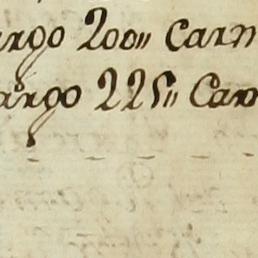 argo 200,, Carn
argo 225,, Carn